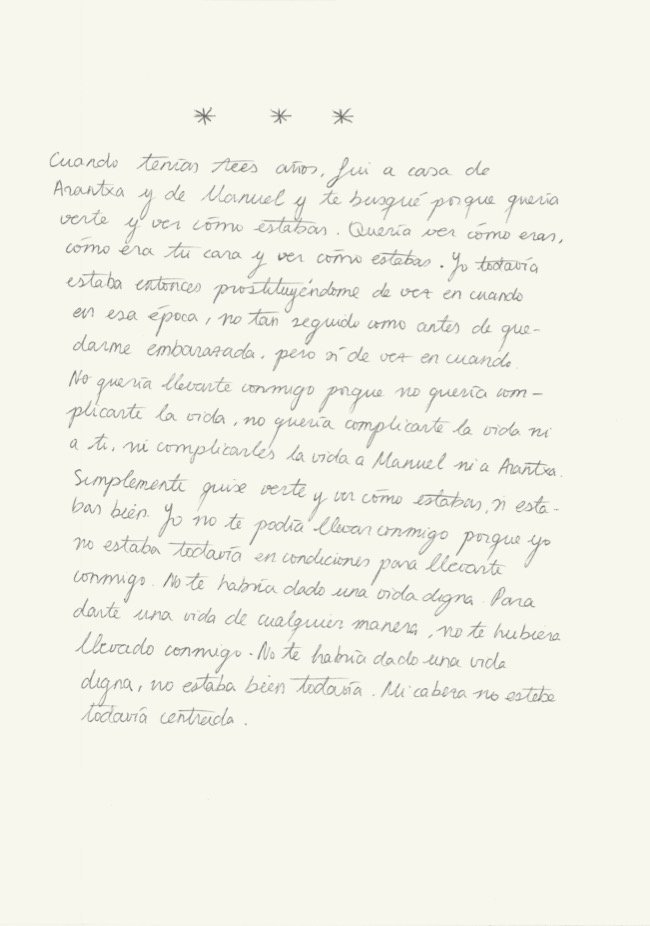 * * *
Cuando tenías tres años, fui a casa de
Arantxa y de Manuel y te busqué porque quería
verte y ver cómo estabas. Quería ver cómo eras,
cómo era tu cara y ver cómo estabas. Yo todavía
estaba entonces prostituyéndome de vez en cuando
en esa época, no tan seguido como antes de que-
darme embarazada, pero sí de vez en cuando.
No quería llevarte conmigo porque no quería com-
plicarte la vida, no quería complicarte la vida ni
a ti, ni complicarles la vida a Manuel ni a Arantxa.
Simplemente quise verte y ver cómo estabas, si esta-
bas bien. Yo no te podía llevar conmigo porque yo
no estaba todavía en condiciones para llevarte
conmigo. No te habría dado una vida digna. Para
darte una vida de cualquier manera, no te hubiera
llevado conmigo. No te habría dado una vida
digna, no estaba bien todavía. Mi cabeza no estaba
todavía centrada.